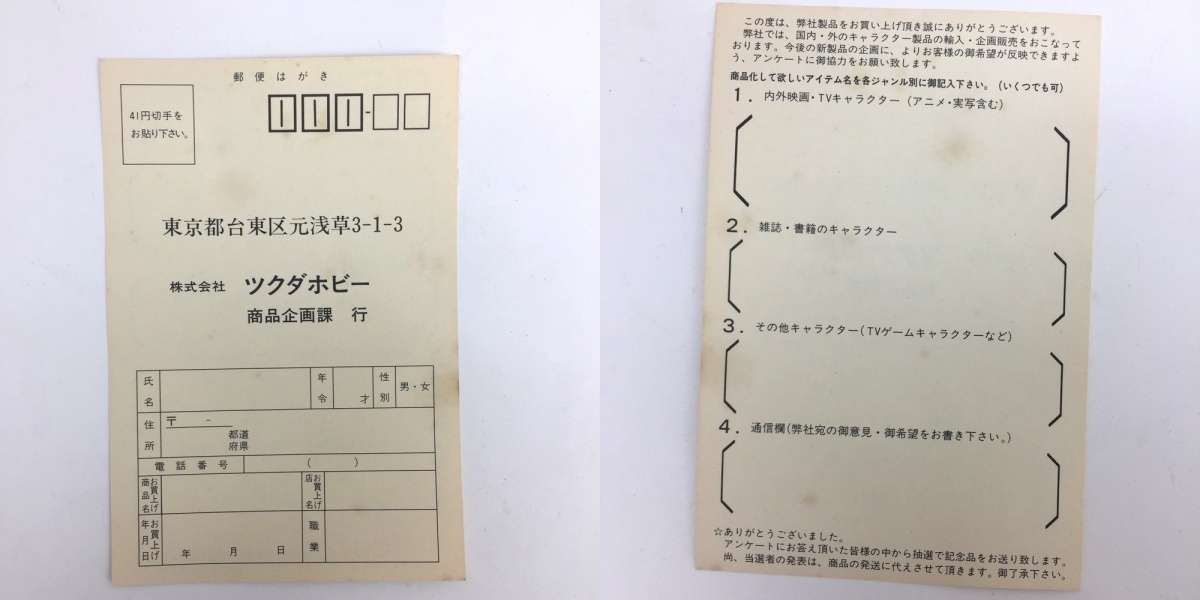 郵便はがき
41円切手を
お貼り下さい。
111-
東京都台東区元浅草3-1-3
株式会社 ツクダホビー
商品企画課 行
氏名
年令 才
性別 男・女
住所 〒 -
都道
府県
電話番号 ( )
お買上げ商品名
お買上げ店名
お買上げ年月日 年 月 日
職業
この度は、弊社製品をお買い上げ頂き誠にありがとうございます。
弊社では、国内・外のキャラクター製品の輸入・企画販売をおこなって
おります。今後の新製品の企画に、よりお客様の御希望が反映できますよ
う、アンケートに御協力をお願い致します。
商品化して欲しいアイテム名を各ジャンル別に御記入下さい。(いくつでも可)
1. 内外映画・TVキャラクター (アニメ・実写含む)
2. 雑誌・書籍のキャラクター
3. その他キャラクター(TVゲームキャラクターなど)
4. 通信欄(弊社宛の御意見・御希望をお書き下さい。)
☆ありがとうございました。
アンケートにお答え頂いた皆様の中から抽選で記念品をお送り致します。
尚、当選者の発表は、商品の発送に代えさせて頂きます。御了承下さい。